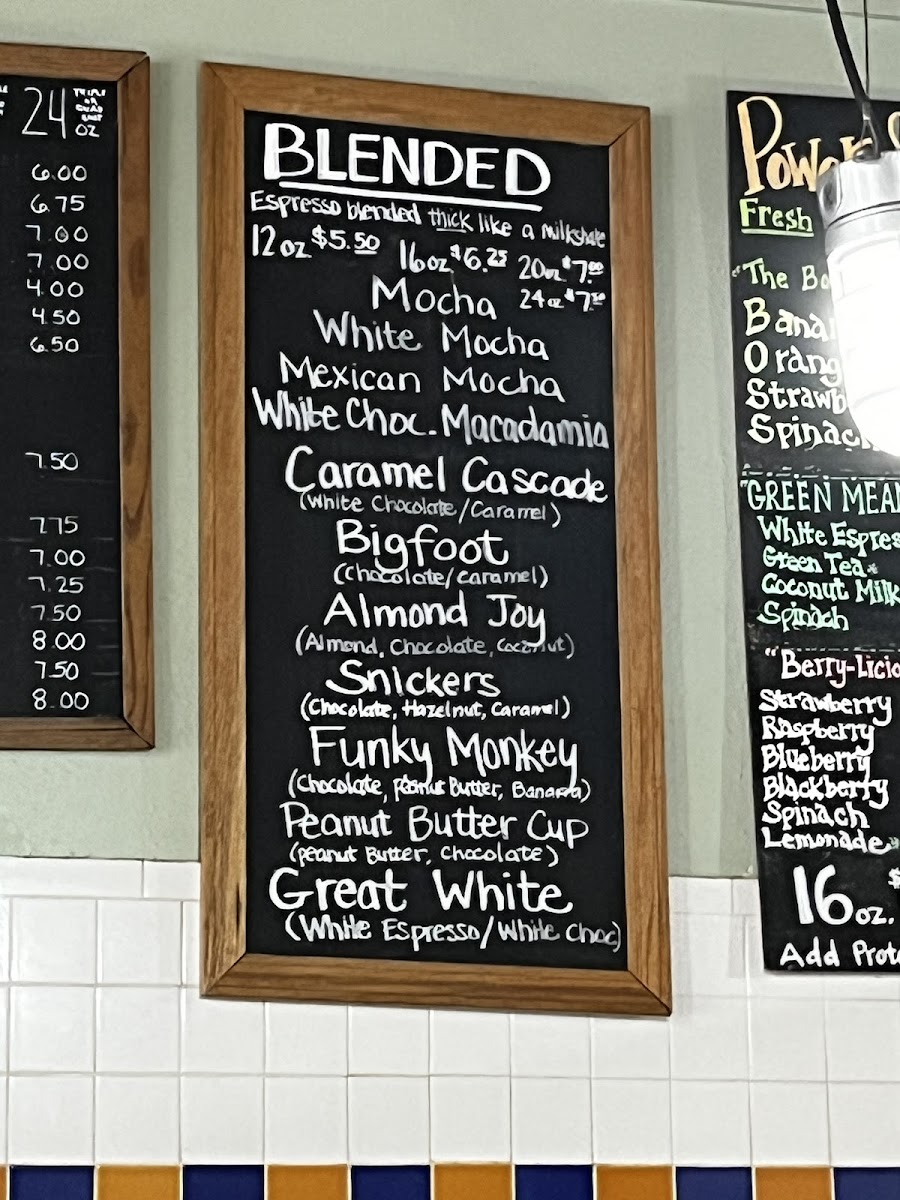 24 OZ
6.00
6.75
7.00
7.00
4.00
4.50
6.50
7.50
7.75
7.00
7.25
7.50
8.00
7.50
8.00
BLENDED
Espresso blended thick like a milkshake
12oz $5.50 16oz $6.25 20oz $7.00
24oz
Mocha
White Mocha
Mexican Mocha
White Choc. Macadamia
Caramel Cascade
(White Chocolate/Caramel)
Bigfoot
(Chocolate/Caramel)
Almond Joy
(Almond, Chocolate, Coconut)
Snickers
(Chocolate, Hazelnut, Caramel)
Funky Monkey
(Chocolate, Peanut Butter, Banana)
Peanut Butter Cup
(peanut Butter, Chocolate)
Great White
(White Espresso/White Choc)
Fresh
"The
GREEN
White
Green Tea
Coconut Milk
Spinach
"Berry-Licio
Strawberry
Raspberry
Blueberry
Blackberry
Spinach
Lemonade
16oz.
Add